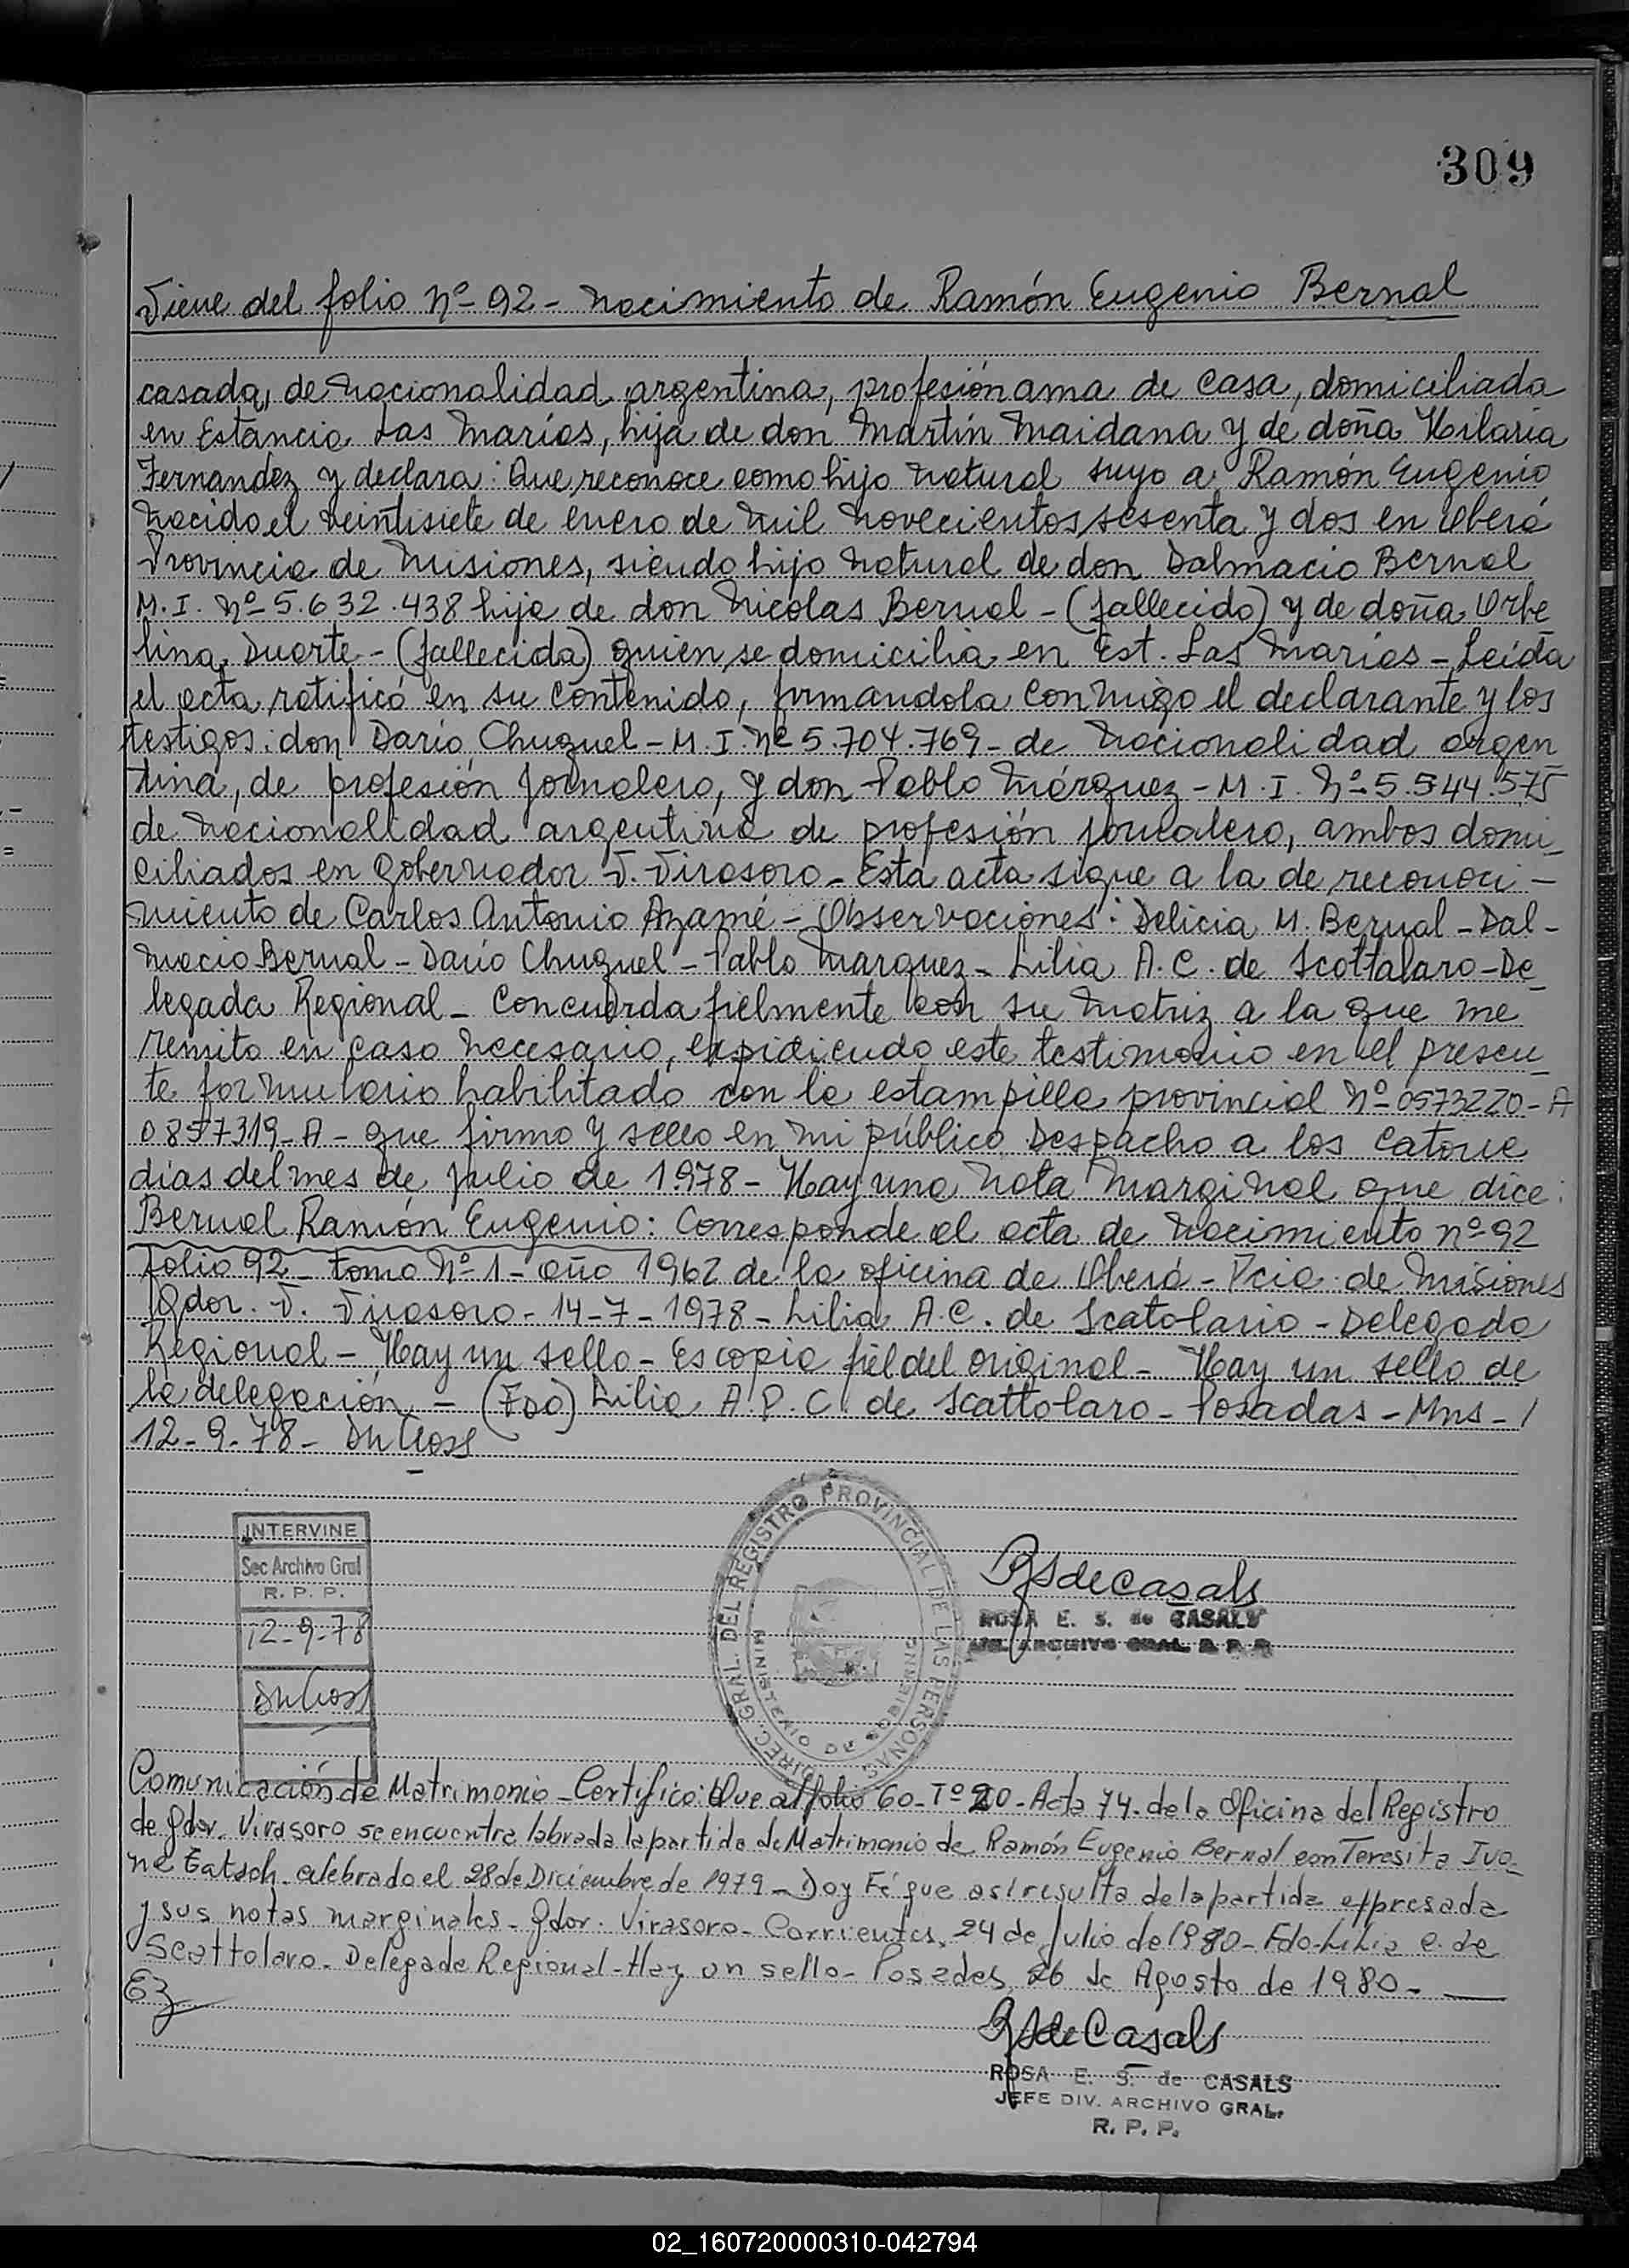 309
Viene del folio Nº 92 - Nacimiento de Ramón Eugenio Bernal
casada, de nacionalidad argentina, profesión ama de casa, domiciliada
en Estancia Las Marías, hija de don Martín Maidana y de doña Hilaria
Fernandez y declara: Que reconoce como hijo natural suyo a Ramón Eugenio
nacido el veintisiete de enero de mil novecientos sesenta y dos en Oberá
Provincia de Misiones, siendo hijo natural de don Dalmacio Bernal
M. I. Nº 5.632.438 hijo de don Nicolas Bernal - (fallecido) y de doña Orbe
lina Duarte - (fallecida) quien se domicilia en Est. Las Marías - Leída
el acta ratificó en su contenido, firmandola conmigo el declarante y los
testigos: don Darío Chuquel - M. I. Nº 5.704.769 - de nacionalidad argen
tina, de profesión jornalero, y don Pablo Márquez - M. I. Nº 5.544.575
de nacionalidad argentina de profesión jornalero, ambos domi_
ciliados en Gobernador V. Virasoro - Esta acta sigue a la de reconoci -
miento de Carlos Antonio Azamé - Observaciones: Delicia M. Bernal - Dal -
macio Bernal - Darío Chuquel - Pablo Marquez - Lilia A. C. de Scottalaro - De_
legada Regional - Concuerda fielmente con su matriz a la que me
remito en caso necesario, expidiendo este testimonio en el presen_
te formulario habilitado con la estampilla provincial Nº 0573220 - A
0857319 - A - que firmo y sello en mi público Despacho a los catorce
días del mes de julio de 1978 - Hay una nota marginal que dice:
Bernal Ramón Eugenio: Corresponde al acta de nacimiento nº 92
folio 92 - tomo Nº 1 - año 1962 de la oficina de Oberá - Pcia. de Misiones
Gdor. V. Virasoro - 14-7-1978 - Lilia A. C. de Scatolario - Delegada
Regional - Hay un sello - Es copia fiel del original - Hay un sello de
la delegación - (Fdo) Lilia A. P. C. de Scattolaro - Posadas - Mns - /
12-9-78 -
INTERVINE
Sec Archivo Gral
R. P. P.
12-9-78
DIREC. GRAL. DEL REGISTRO PROVINCIAL DE LAS PERSONAS
MINISTERIO DE GOBIERNO
RSdeCasals
ROSA E. S. de CASALS
ARCHIVO GRAL. R. P. P.
Comunicación de Matrimonio - Certifico: Que al folio 60 - Tº 20 - Acta 74 - de la Oficina del Registro
de Gdor. Virasoro se encuentra labrada la partida de Matrimonio de Ramón Eugenio Bernal con Teresita Ivo_
ne Gatsch celebrado el 28 de Diciembre de 1979 - Doy Fé que así resulta de la partida expresada
y sus notas marginales - Gdor. Virasoro - Corrientes, 24 de Julio de 1980 - Fdo. Lilia C. de
Scattolaro - Delegada Regional - Hay un sello - Posadas, 26 de Agosto de 1980 -
Ez
RSdeCasals
ROSA E. S. de CASALS
JEFE DIV. ARCHIVO GRAL.
R. P. P.
02_160720000310-042794